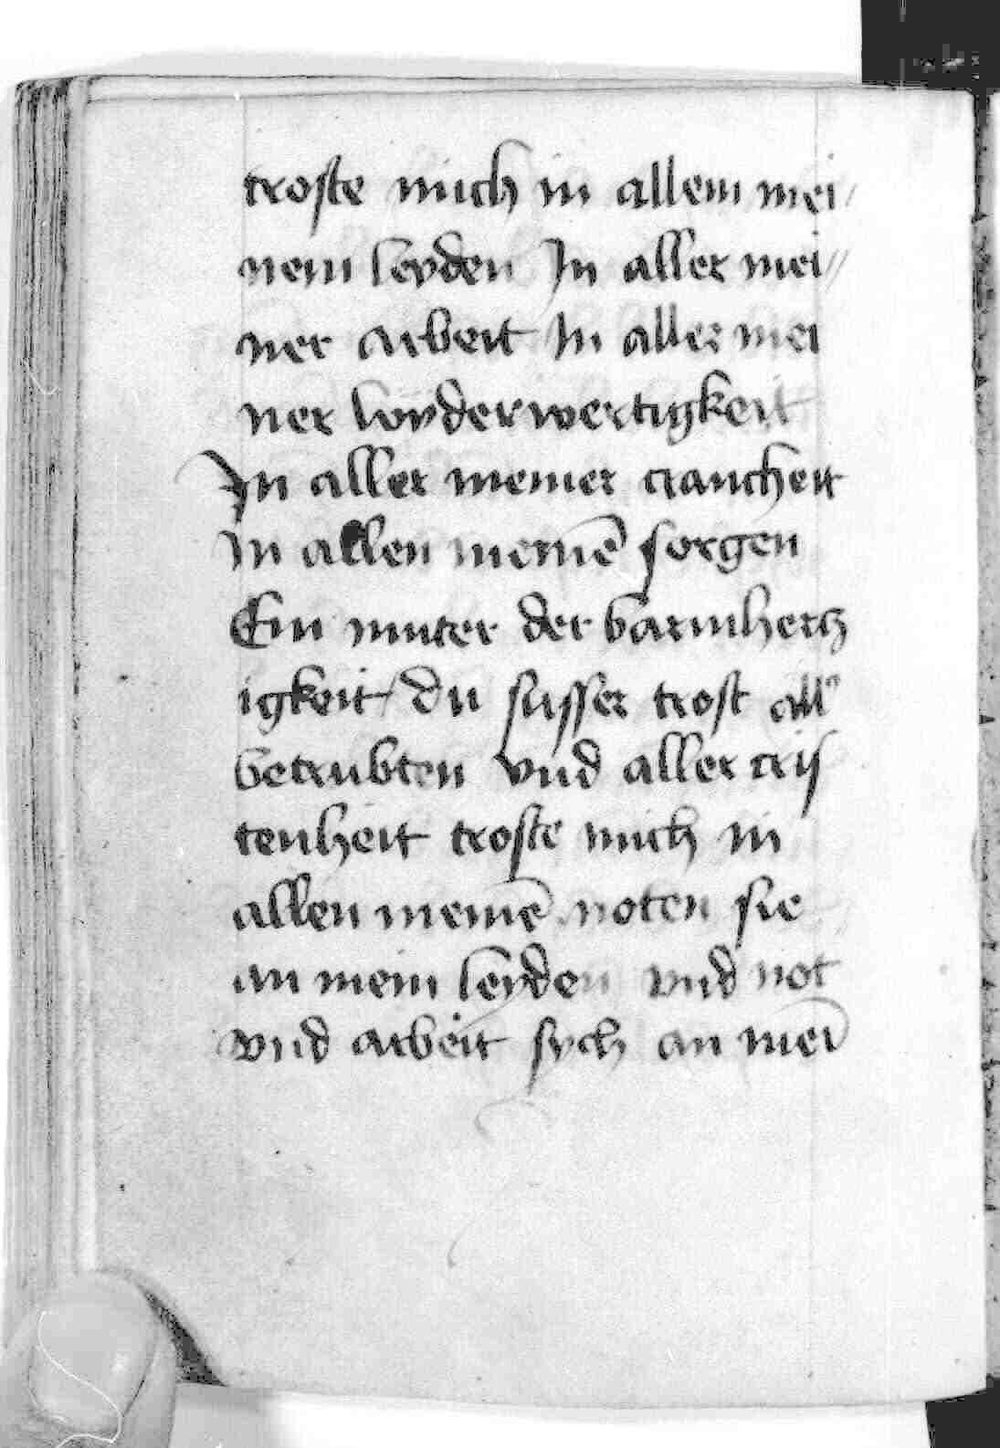 troste mich in allem mei/
nem leyden In aller mei//
ner arbeit In aller mei
ner wyderwertigkeit
In aller meiner cranckeit
In allen meinē sorgen
Ein muter der barmhertz
igkeit / du susser trost all᾽
betrubten vnd aller cris
tenheit troste mich in
allen meinē noten sie
an mein leyden vnd not
vnd arbeit sych an mei᷑